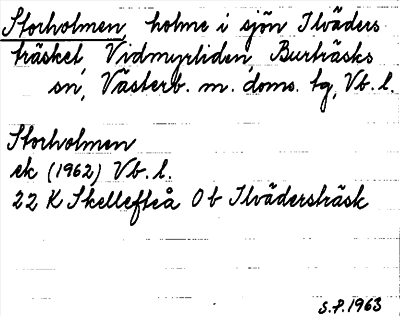 Storholmen, holme i sjön Ilväders
träsket, Vidmyrliden, Burträsks
sn, Västerb. m. doms. tg, Vb. l.
Storholmen
ek (1962) Vb. l.
22 K Skellefteå 0 b Ilvädersträsk
S.P. 1963